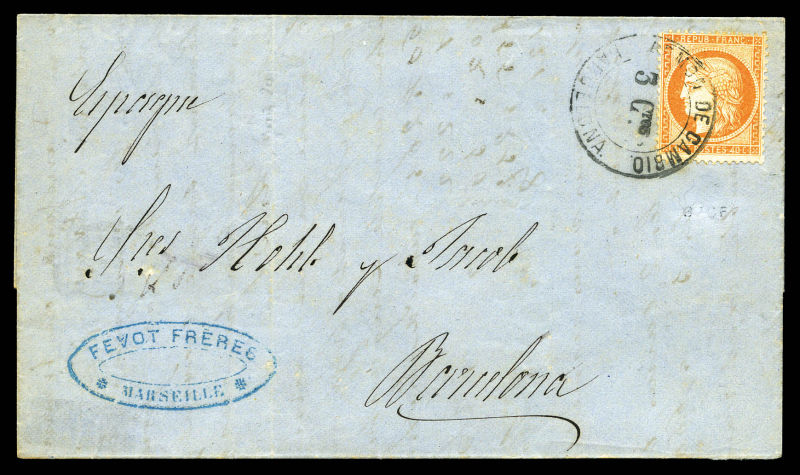 REPUB. FRANC.
POSTES 40 C
DE CAMBIO.
5 Ctos
Espagne
Sres Kohl y Jacob
FEVOT FRÈRES
MARSEILLE
Barcelona